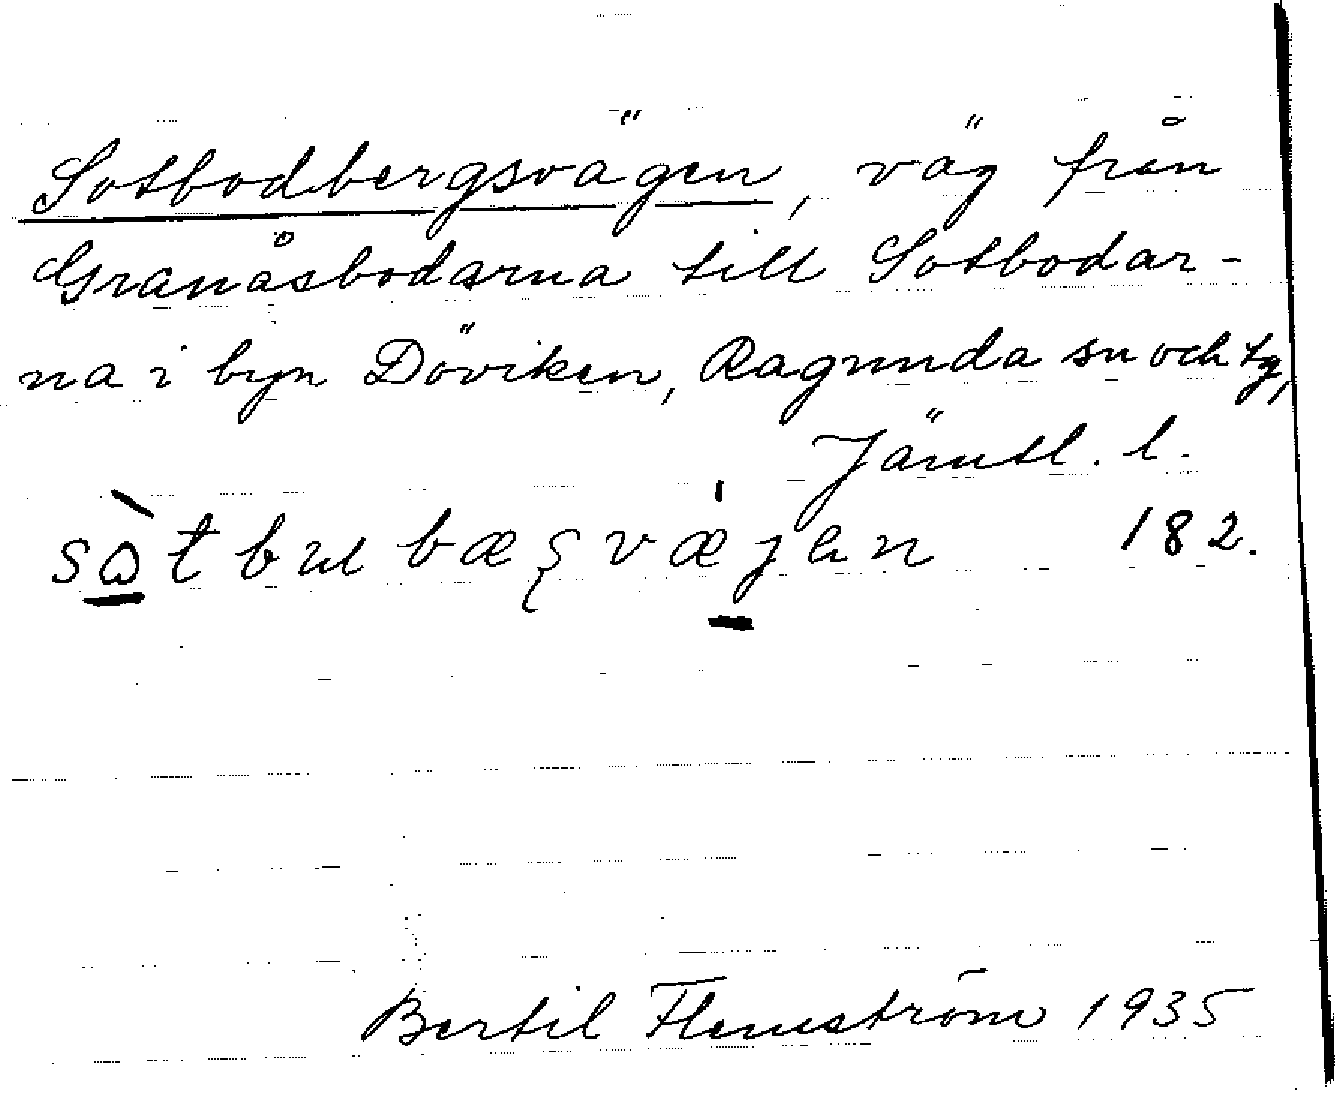 Sotbodbergsvägen, väg från
Granåsbodarna till Sotbodar-
na i byn Döviken, Ragunda sn och tg,
Jämtl. l.
182.
Bertil Flemström 1935